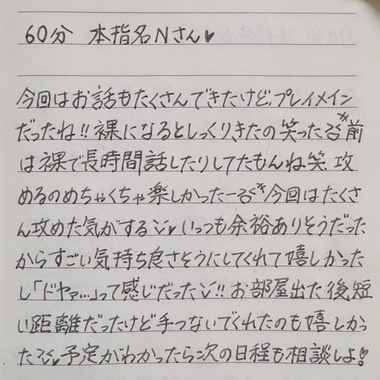 60分 本指名Nさん♥
今回はお話もたくさんできたけど、プレイメイン
だったね!!裸になるとしっくりきたの笑った 前
は裸で長時間話したりしてたもんね笑 攻
めるのめちゃくちゃ楽しかったー 今回はたくさ
ん攻めた気がする♥いつも余裕ありそうだった
からすごい気持ち良さそうにしてくれて嬉しかった
し「ドヤァ…」って感じだった!!お部屋出た後、短
い距離だったけど手つないでくれたのも嬉しかっ
た♥予定がわかったら次の日程も相談しよ!